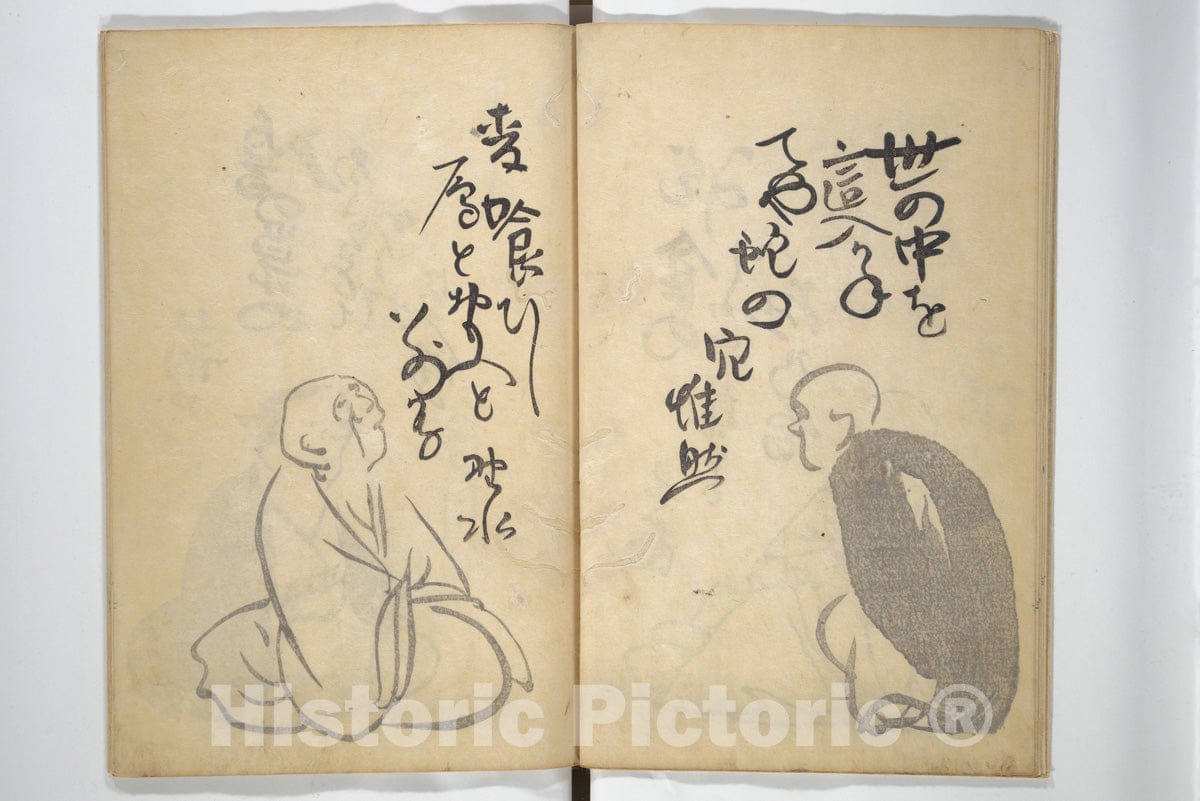 世の中を
這入かね
てや蛇の
穴
惟然
麦喰ひし
鴈と思へと
別哉
野水
Historic Pictoric ®